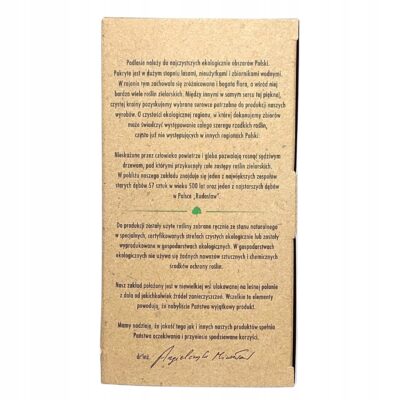 Podlasie należy do najczystszych ekologicznie obszarów Polski.
Pokryte jest w dużym stopniu lasami, nieużytkami i zbiornikami wodnymi.
W rejonie tym zachowała się zróżnicowana i bogata flora, a wśród niej
bardzo wiele roślin zielarskich. Między innymi w samym sercu tej pięknej,
czystej krainy pozyskujemy wybrane surowce potrzebne do produkcji naszych
wyrobów. O czystości ekologicznej regionu, w której dokonujemy zbiorów
może świadczyć występowanie całego szeregu rzadkich roślin,
często już nie występujących w innych regionach Polski.
Nieskażone przez człowieka powietrze i gleba pozwalają rosnąć sędziwym
drzewom, pod którymi przykucnęły całe zastępy roślin zielarskich.
W pobliżu naszego zakładu znajduje się jeden z największych zespołów
starych dębów 57 sztuk w wieku 500 lat oraz jeden z najstarszych dębów
w Polsce „Radosław".
Do produkcji zostały użyte rośliny zebrane ręcznie ze stanu naturalnego
w specjalnych, certyfikowanych strefach czystych ekologicznie lub zostały
wyprodukowane w gospodarstwach ekologicznych. W gospodarstwach
ekologicznych nie używa się żadnych nawozów sztucznych i chemicznych
środków ochrony roślin.
Nasz zakład położony jest w niewielkiej wsi ulokowanej na leśnej polanie
z dala od jakichkolwiek źródeł zanieczyszczeń. Wszelkie te elementy
powodują, że nabyliście Państwo wyjątkowy produkt.
Mamy nadzieję, że jakość tego jak i innych naszych produktów spełnia
Państwa oczekiwania i przyniesie spodziewane korzyści.